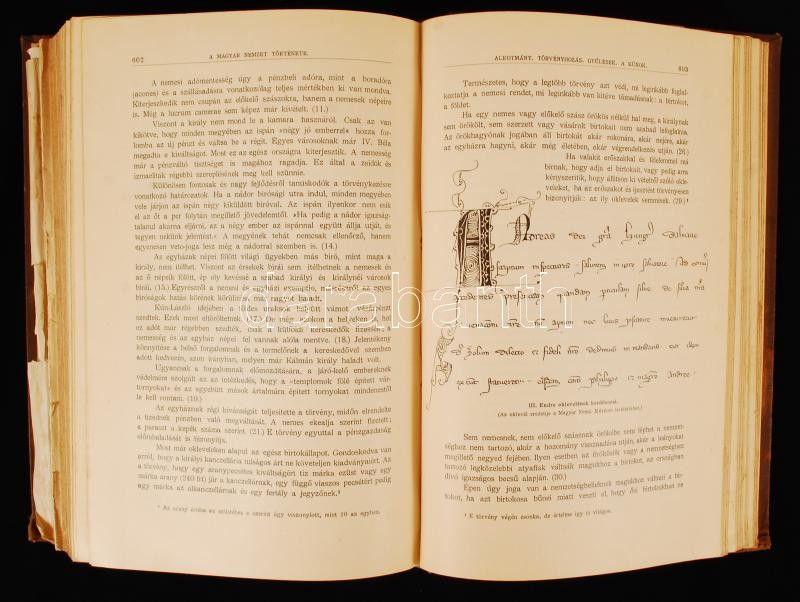 602
A MAGYAR NEMZET TÖRTÉNETE.
A nemesi adómentesség úgy a pénzbeli adóra, mint a boradóra
(acones) és a szállásadásra vonatkozólag teljes mértékben ki van mondva.
Kiterjeszkedik nem csupán az előkelő szászokra, hanem a nemesek népeire
is. Még a lucrum camerae sem képez már kivételt. (11.)
Viszont a király nem mond le a kamara hasznáról. Csak az van
kikötve, hogy minden megyében az ispán «négy jó emberrel» hozza for-
lomba az új pénzt és váltsa be a régit. Egyes városoknak már IV. Béla
megadta e kiváltságot. Most ez az egész országra kiterjesztik. A nemesség
már a pénzváltó tisztséget is magához ragadja. Ez által a zsidók és
izmaeliták régebbi szereplésének meg kell szünnie.
Különösen fontosak és nagy fejlődésről tanúskodók a törvénykezésre
vonatkozó határozatok. Ha a nádor bírósági útra indul, minden megyében
vele járjon az ispán négy kiküldött bíróval. Az ispán ilyenkor nem esik
el az őt a per folytán megillető jövedelemtől. «Ha pedig a nádor igazság-
talanul akarna eljárni, az a négy ember az ispánnal együtt állja útját, és
tegyen nekünk jelentést.» A megyének tehát nemcsak ellenőrző, hanem
egyenesen veto-joga lesz még a nádorral szemben is. (14.)
Az egyházak népei fölött világi ügyekben más bíró, mint maga a
király, nem ítélhet. Viszont az érsekek bírái sem ítélhetnek a nemesek és
az ő népeik fölött, ép oly kevéssé a szabad királyi és királynéi városok
bírái. (15.) Egyrészről a nemesi és egyházi exemptio, másrészről az egyes
bíróságok hatás körének körülírása már nagyot haladt.
Kún-László idejében a földes urak
szedtek. Ezek most eltöröltetnek. (17.) De még azokon a helyeken is, hol
ez adót már régebben szedték, csak a külföldi kereskedők fizessék; a
nemesség és az egyház népei fel vannak alóla mentve. (18.) Jelentékeny
könnyítése a belső forgalomnak és a termelőnek a kereskedővel szemben
adott kedvezés, azon irányban, melyen már Kálmán király haladt volt.
Ugyancsak a forgalomnak előmozdítására, a járó-kelő embereknek
védelmére szolgált az az intézkedés, hogy a «templomok fölé épített vár-
tornyokat» és az egyebütt mások ártalmára épített tornyokat mindenestől
le kell rontani. (19.)
Az egyháznak régi kívánságát teljesítette a törvény, midőn elrendelte
a tizednek pénzben való megváltását. A nemes ekealja szerint fizetett;
a paraszt a kepék száma szerint. (21.) E törvény egyuttal a pénzgazdaság
előrehaladását is bizonyítja.
Most már okleveleken alapul az egész birtokállapot. Gondoskodva van
arról, hogy a királyi kanczellária túlságos árt ne követeljen kiadványaiért. Az
a törvény, hogy egy aranypecsétes kiváltságért tíz márka ezüst vagy egy
márka arany (240 frt) jár a kanczellárnak, egy függő viaszos pecsétért pedig
egy márka az alkanczellárnak és egy fertály a jegyzőnek.¹
¹ Az arany értéke az ezüstéhez e szerint úgy viszonylott, mint 10 az egyhez.
ALKOTMÁNY. TÖRVÉNYHOZÁS. GYŰLÉSEK. A KÚNOK.
603
Természetes, hogy a legtöbb törvény azt védi, mi leginkább foglal-
koztatja a nemesi rendet, mi leginkább van kitéve támadásnak: a birtokot,
a földet.
Ha egy nemes vagy előkelő szász örökös nélkül hal meg, a királynak
sem örökölt, sem szerzett vagy vásárolt birtokait nem szabad lefoglalnia.
Az örökhagyónak jogában áll birtokát akár rokonára, akár nejére, akár
az egyházra hagyni, akár még életében, akár végrendelkezés útján. (26.)
Ha valakit erőszakkal és félelemmel rá
birnak, hogy adja el birtokát, vagy pedig arra
kényszerítik, hogy állítson ki vételről szóló okle-
veleket, ha az erőszakot és ijesztést törvényesen
bizonyítják: az ily oklevelek semmisek. (29.)¹
III. Endre oklevelének kezdősorai.
(Az oklevél eredetije a Magyar Nemz. Múzeum levéltárában.)
Sem nemesnek, sem előkelő szásznak örökébe nem léphet a nemzet-
séghez nem tartozó, akár a hozomány visszaadása útján, akár a leányokat
megillető negyed fejében. Ilyen esetben az örökösök vagy a nemzetséghez
tartozó legközelebbi atyafiak váltsák magukhoz a birtokot, az országban
dívó igazságos becsű alapján. (30.)
Épen úgy joga van a nemzetségbelieknek magukhoz váltani a bir-
tokot, ha azt birtokosa bűnei miatt veszti el, hogy ősi birtokukban ne
¹ E törvény végén csonka, de értelme így is világos.
darabanth